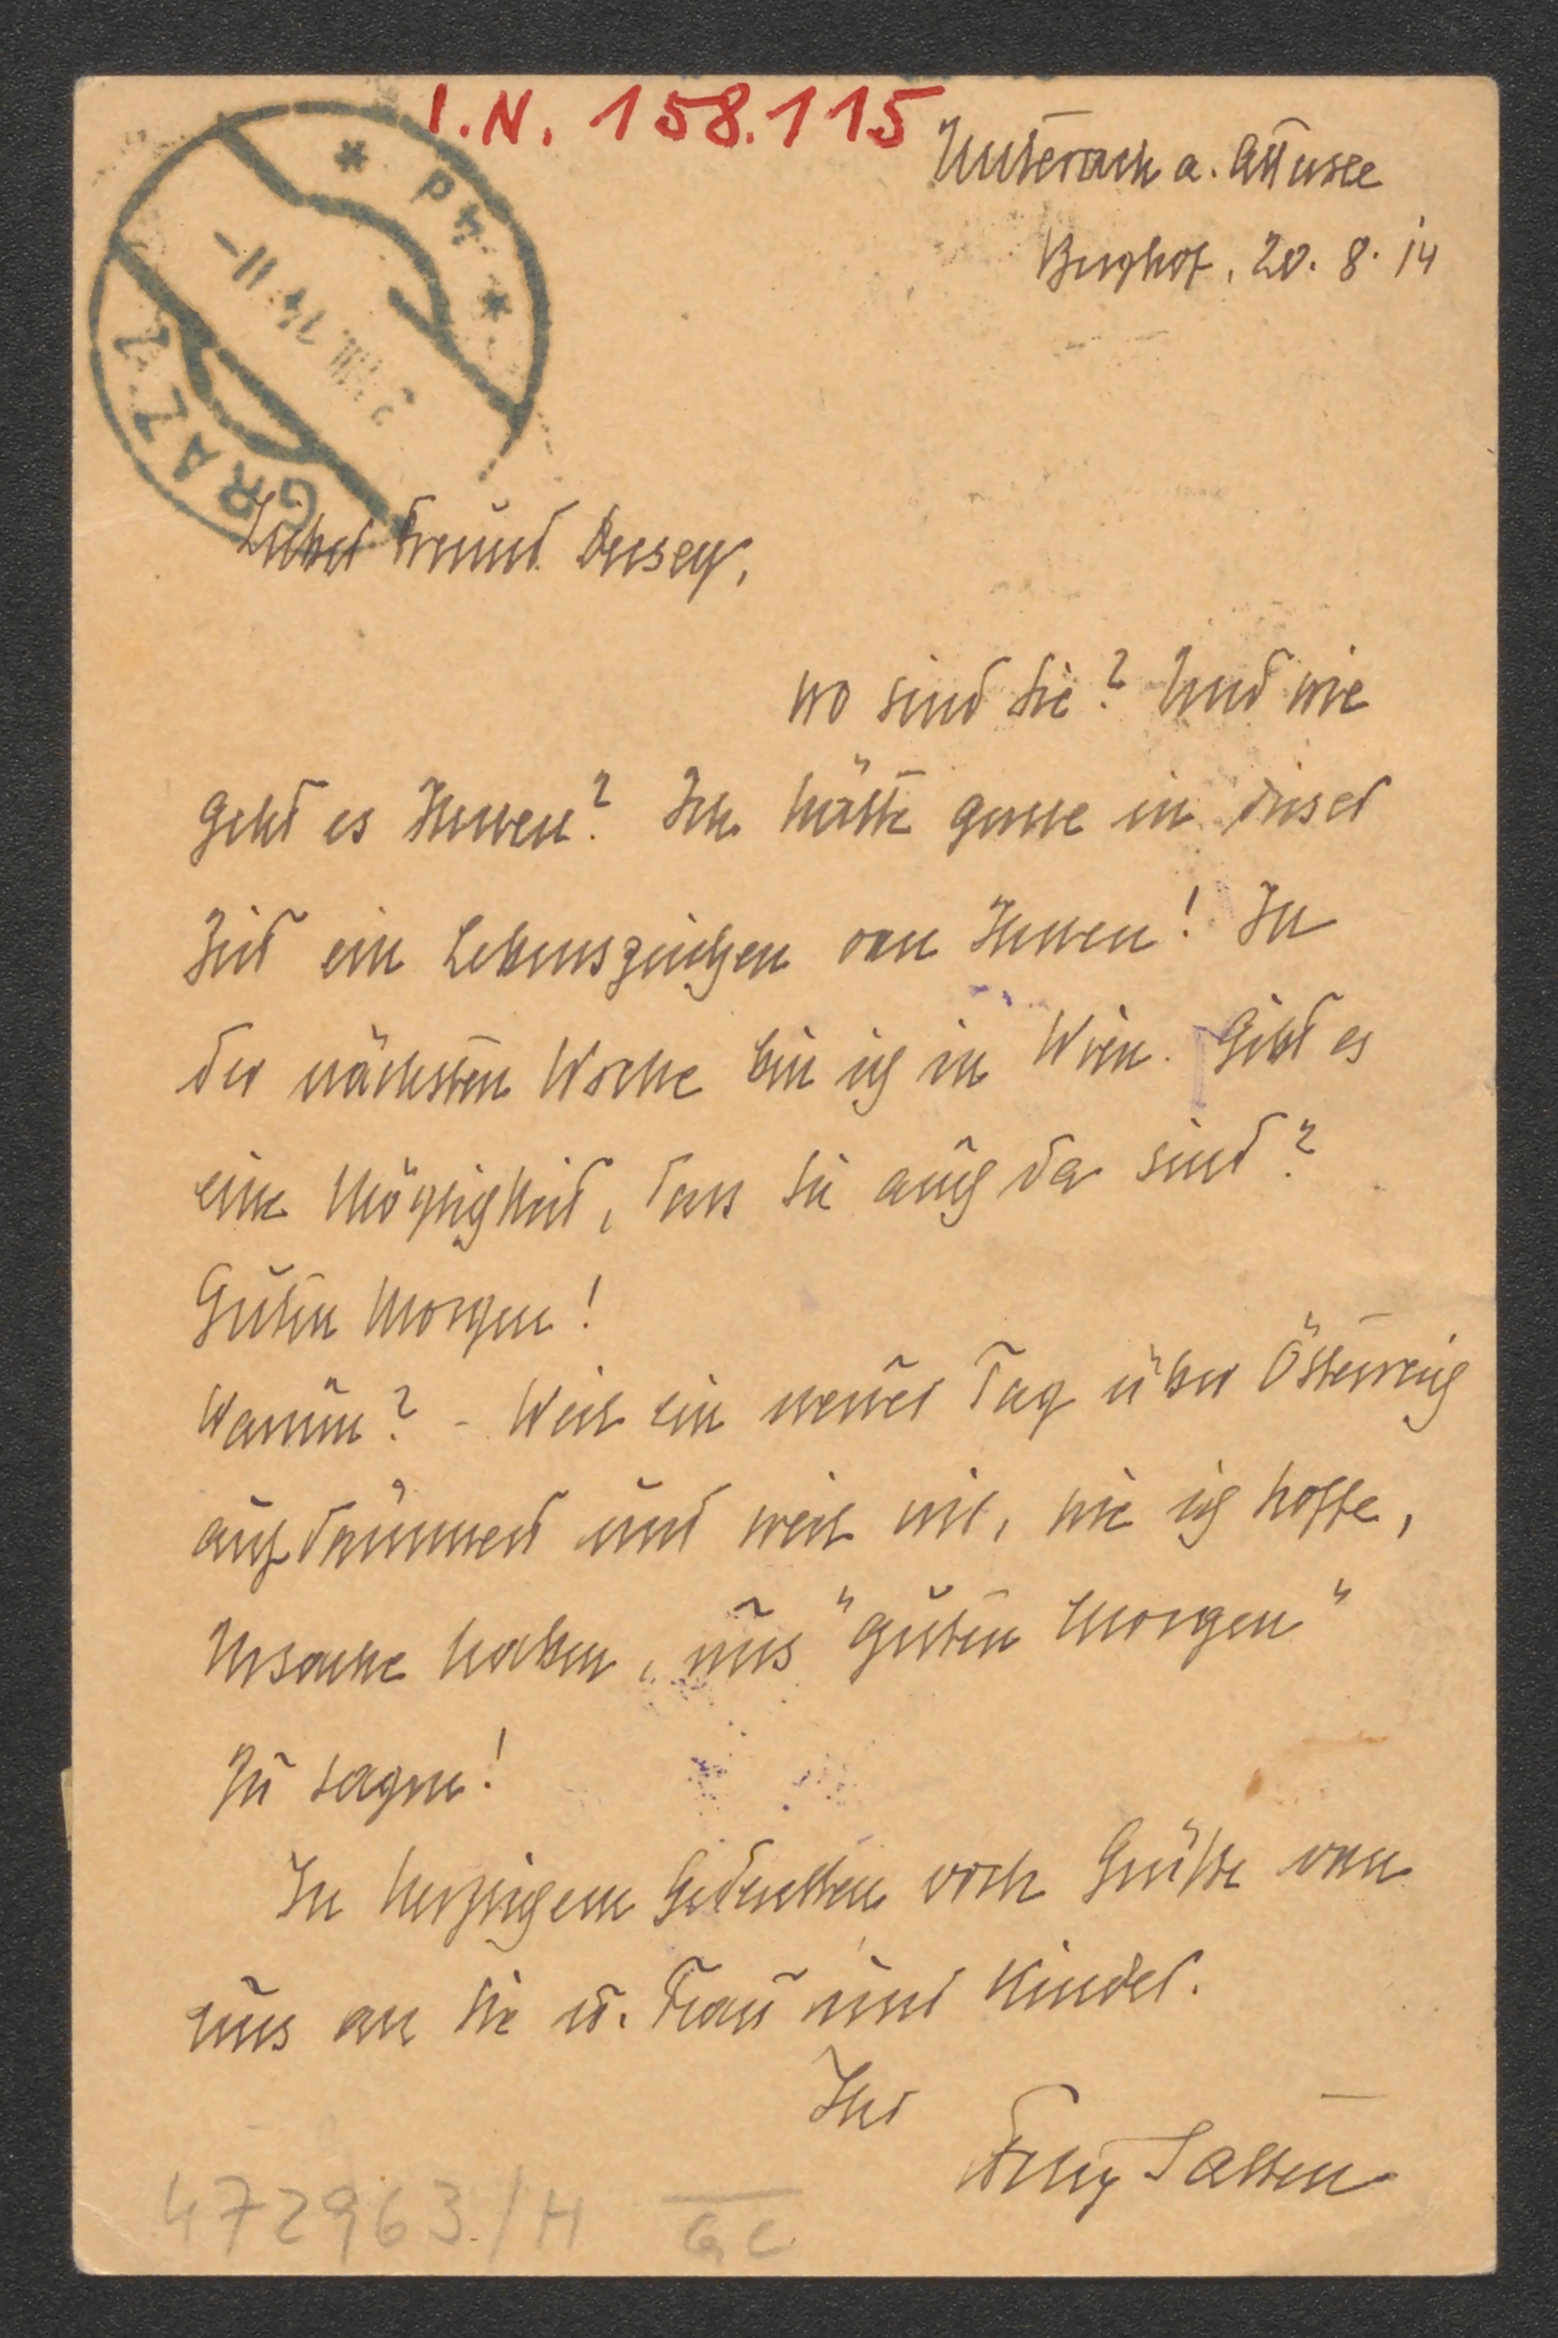 I.N. 158.115
Unterach a. Attersee
Berghof, 20. 8. 14
* P4 *
14 11-
GRAZ 1
Lieber Freund Decsey,
wo sind Sie? Und wie
geht es Ihnen? Ich hätte gerne in dieser
Zeit ein Lebenszeichen von Ihnen! In
der nächsten Woche bin ich in Wien. Gibt es
eine Möglichkeit, dass Sie auch da sind?
Guten Morgen!
Warum? - Weil ein neuer Tag über Österreich
aufdämmert und weil wir, wie ich hoffe,
Ursache haben, uns "guten Morgen"
zu sagen!
In herzlichem Gedenken viele Grüße von
uns an Sie u. Frau und Kinder.
Ihr
Felix Salten
472963/H